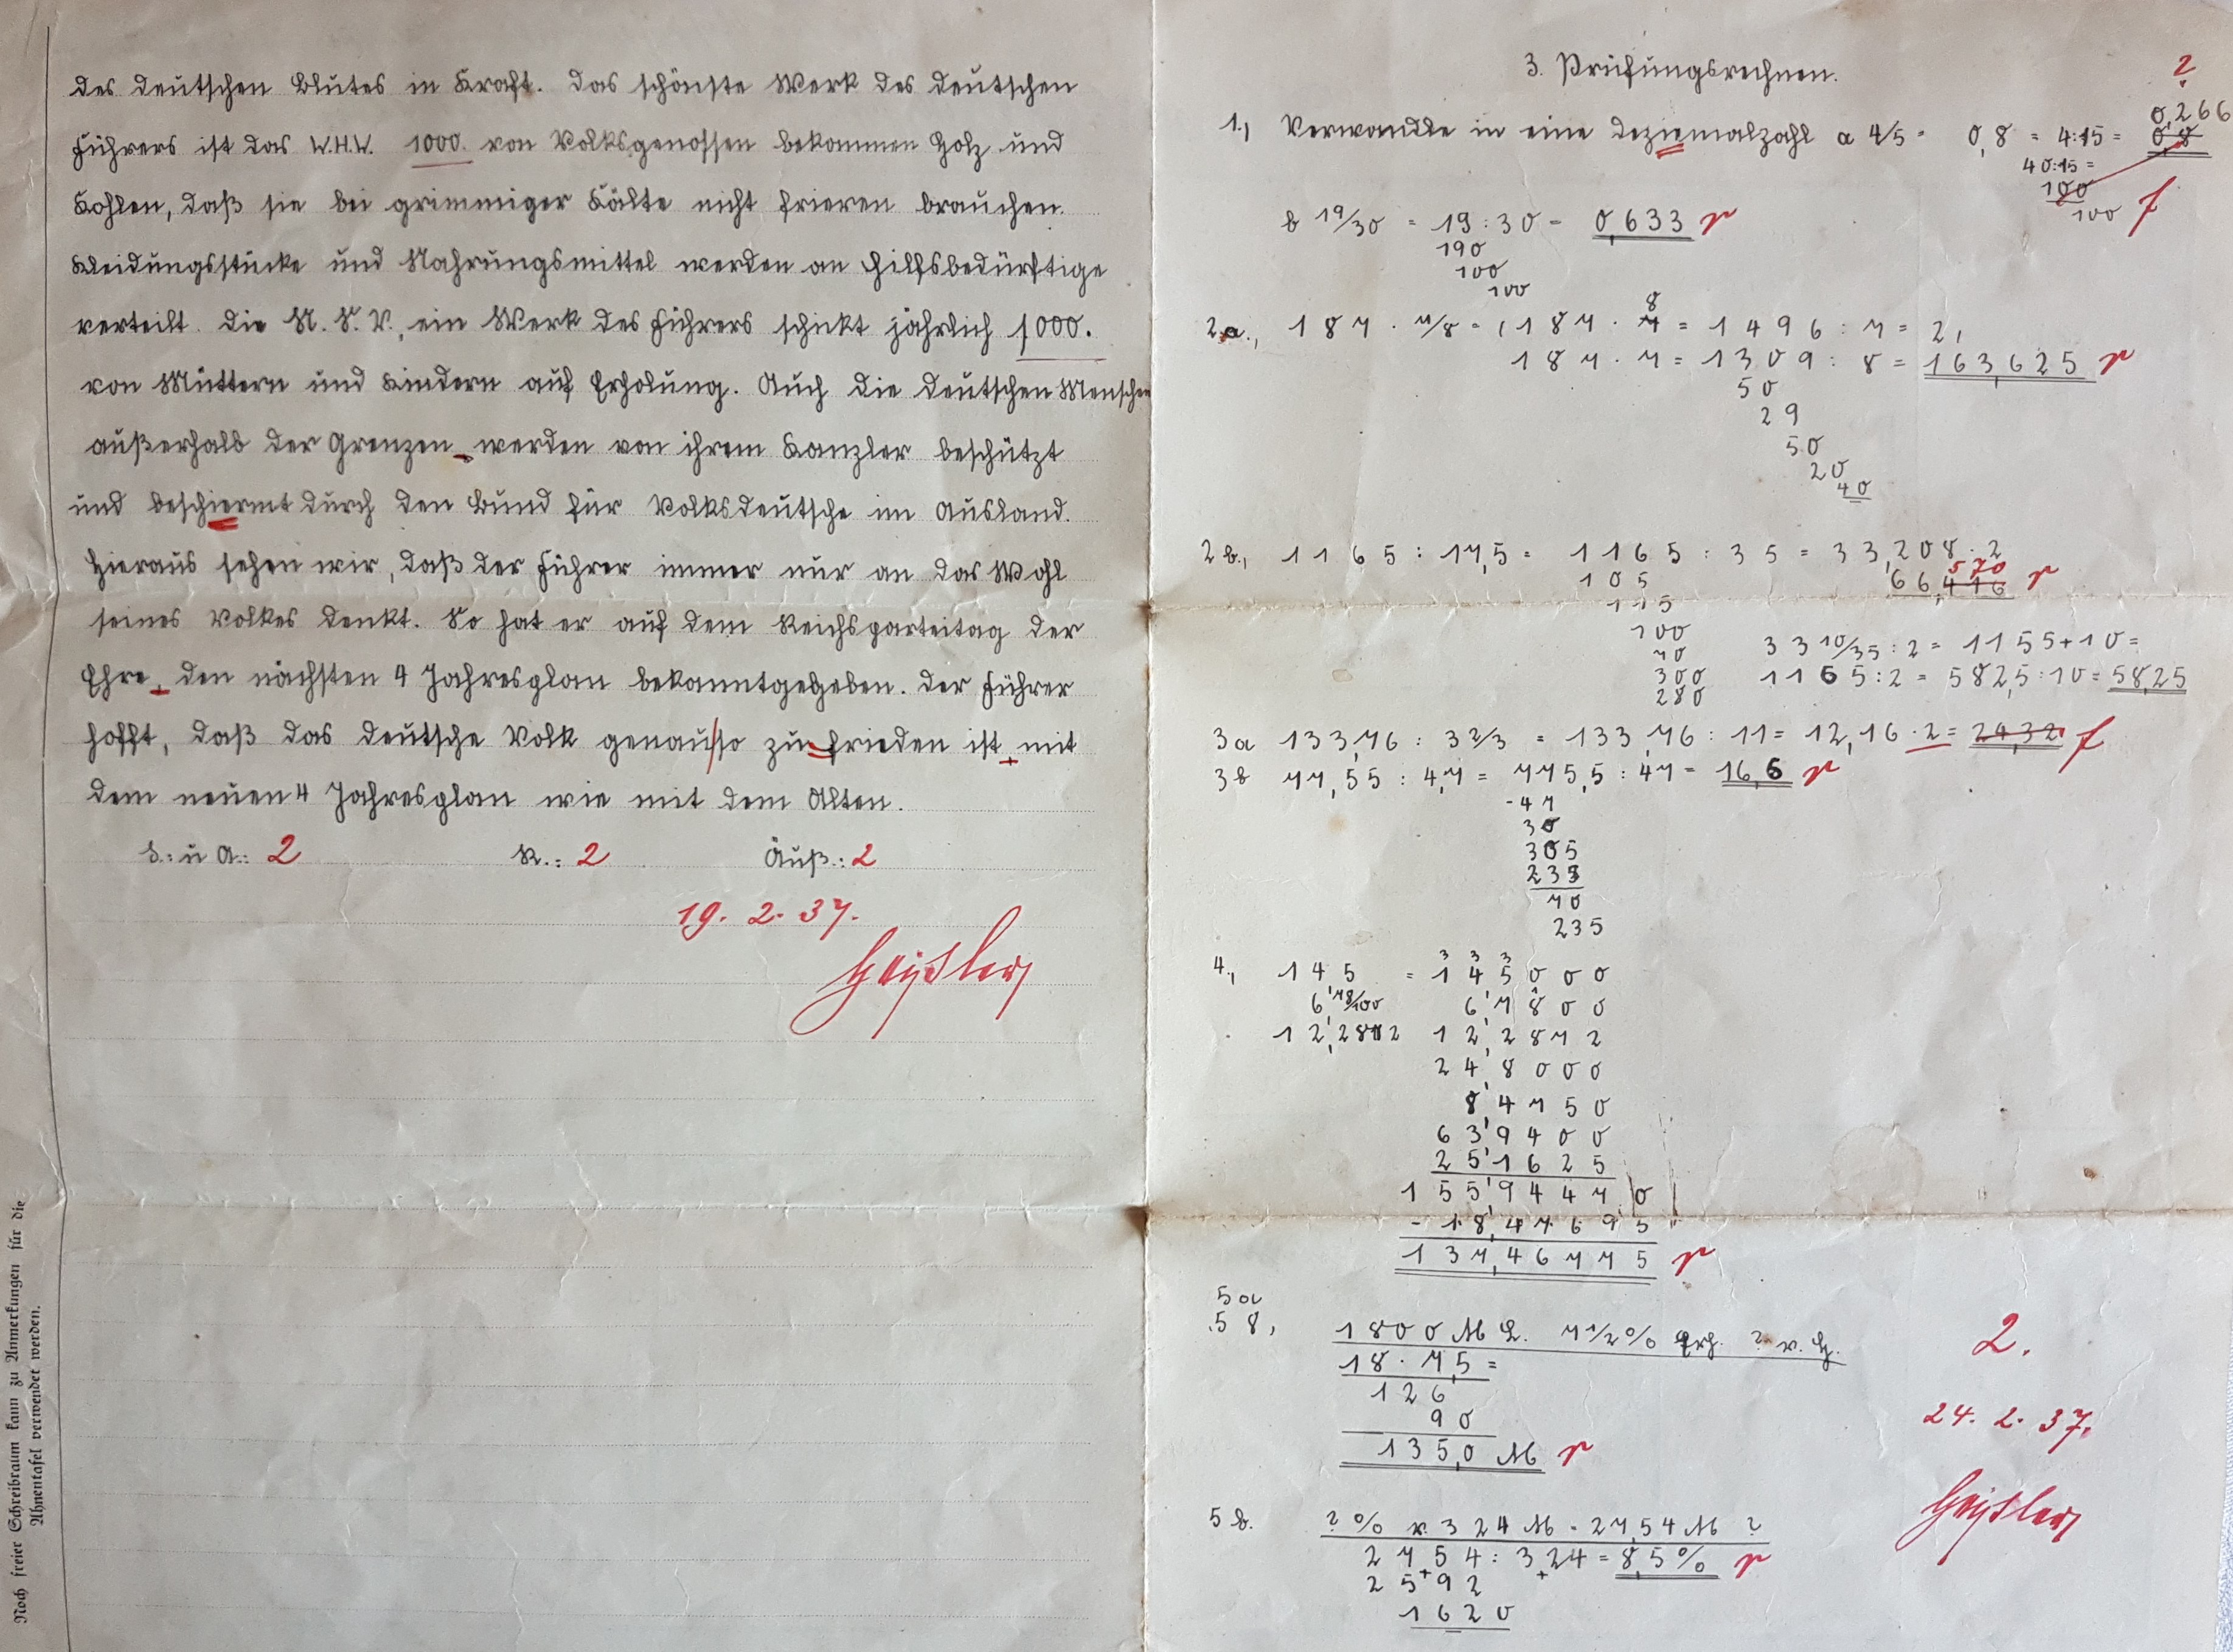 des deutschen Blutes in Kraft. Das schönste Werk des deutschen
Führers ist das W.H.W. 1000. von Volksgenossen bekommen Holz und
Kohlen, daß sie bei grimmiger Kälte nicht frieren brauchen.
Kleidungsstücke und Nahrungsmittel werden an Hilfsbedürftige
verteilt. Die N.S.V., ein Werk des Führers schickt jährlich 1000.
von Müttern und Kindern auf Erholung. Auch die deutschen Menschen
außerhalb der Grenzen werden von ihrem Kanzler beschützt
und beschiermt durch den Bund für Volksdeutsche im Ausland.
Hieraus sehen wir, daß der Führer immer nur an das Wohl
seines Volkes denkt. So hat er auf dem Reichsparteitag der
Ehre, den nächsten 4 Jahresplan bekanntgegeben. Der Führer
hofft, daß das deutsche Volk genau/so zu frieden ist, mit
dem neuen 4 Jahresplan wie mit dem Alten.
S. u A.: 2 R.: 2 Äuß.: 2
19. 2. 37.
Geißler
Noch freier Schreibraum kann zu Anmerkungen für die
Ahnentafel verwendet werden.
3. Prüfungsrechnen.
2
0,266
1., Verwandle in eine Deziemalzahl a 4/5 = 0,8 = 4:15 = 0,8
40:15 =
100
100 f
b 19/30 = 19 : 30 = 0,633 r
190
100
100
8
2a., 187 · 7/8 = 187 · 7 = 1496 : 7 = 2,
187 · 7 = 1309 : 8 = 163,625 r
50
29
50
20
40
2b., 1165 : 17,5 = 1165 : 35 = 33,208 · 2
570
105 66,416 r
115
100 33 10/35 : 2 = 1155 + 10 =
70
300 1165 : 2 = 582,5 : 10 = 58,25
280
3a 133,76 : 3 2/3 = 133,76 : 11 = 12,16 · 2 = 24,32 f
3b 77,55 : 4,7 = 775,5 : 47 = 16,5 r
-47
30
305
235
70
235
3 3 3
4., 145 = 145000
6,78/100 6,7800
12,2872 12,2872
24,8000
8,4750
63,9400
25,1625
155,94470
- 18,47695
137,46775 r
5a
5b, 1800 M K. 7 1/2 % Erh. ? v. H.
18 · 7,5 =
126
90
135,0 M r
2.
24. 2. 37.
Geißler
5b. ? % v. 324 M = 27,54 M ?
2754 : 324 = 8,5% r
2592
1620